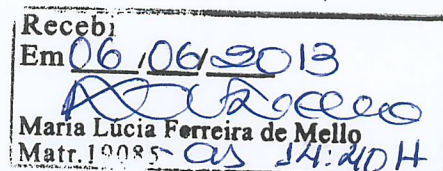 Recebi
Em 06/06/2013
Maria Lúcia Ferreira de Mello
Matr. 19085- às 14:40H